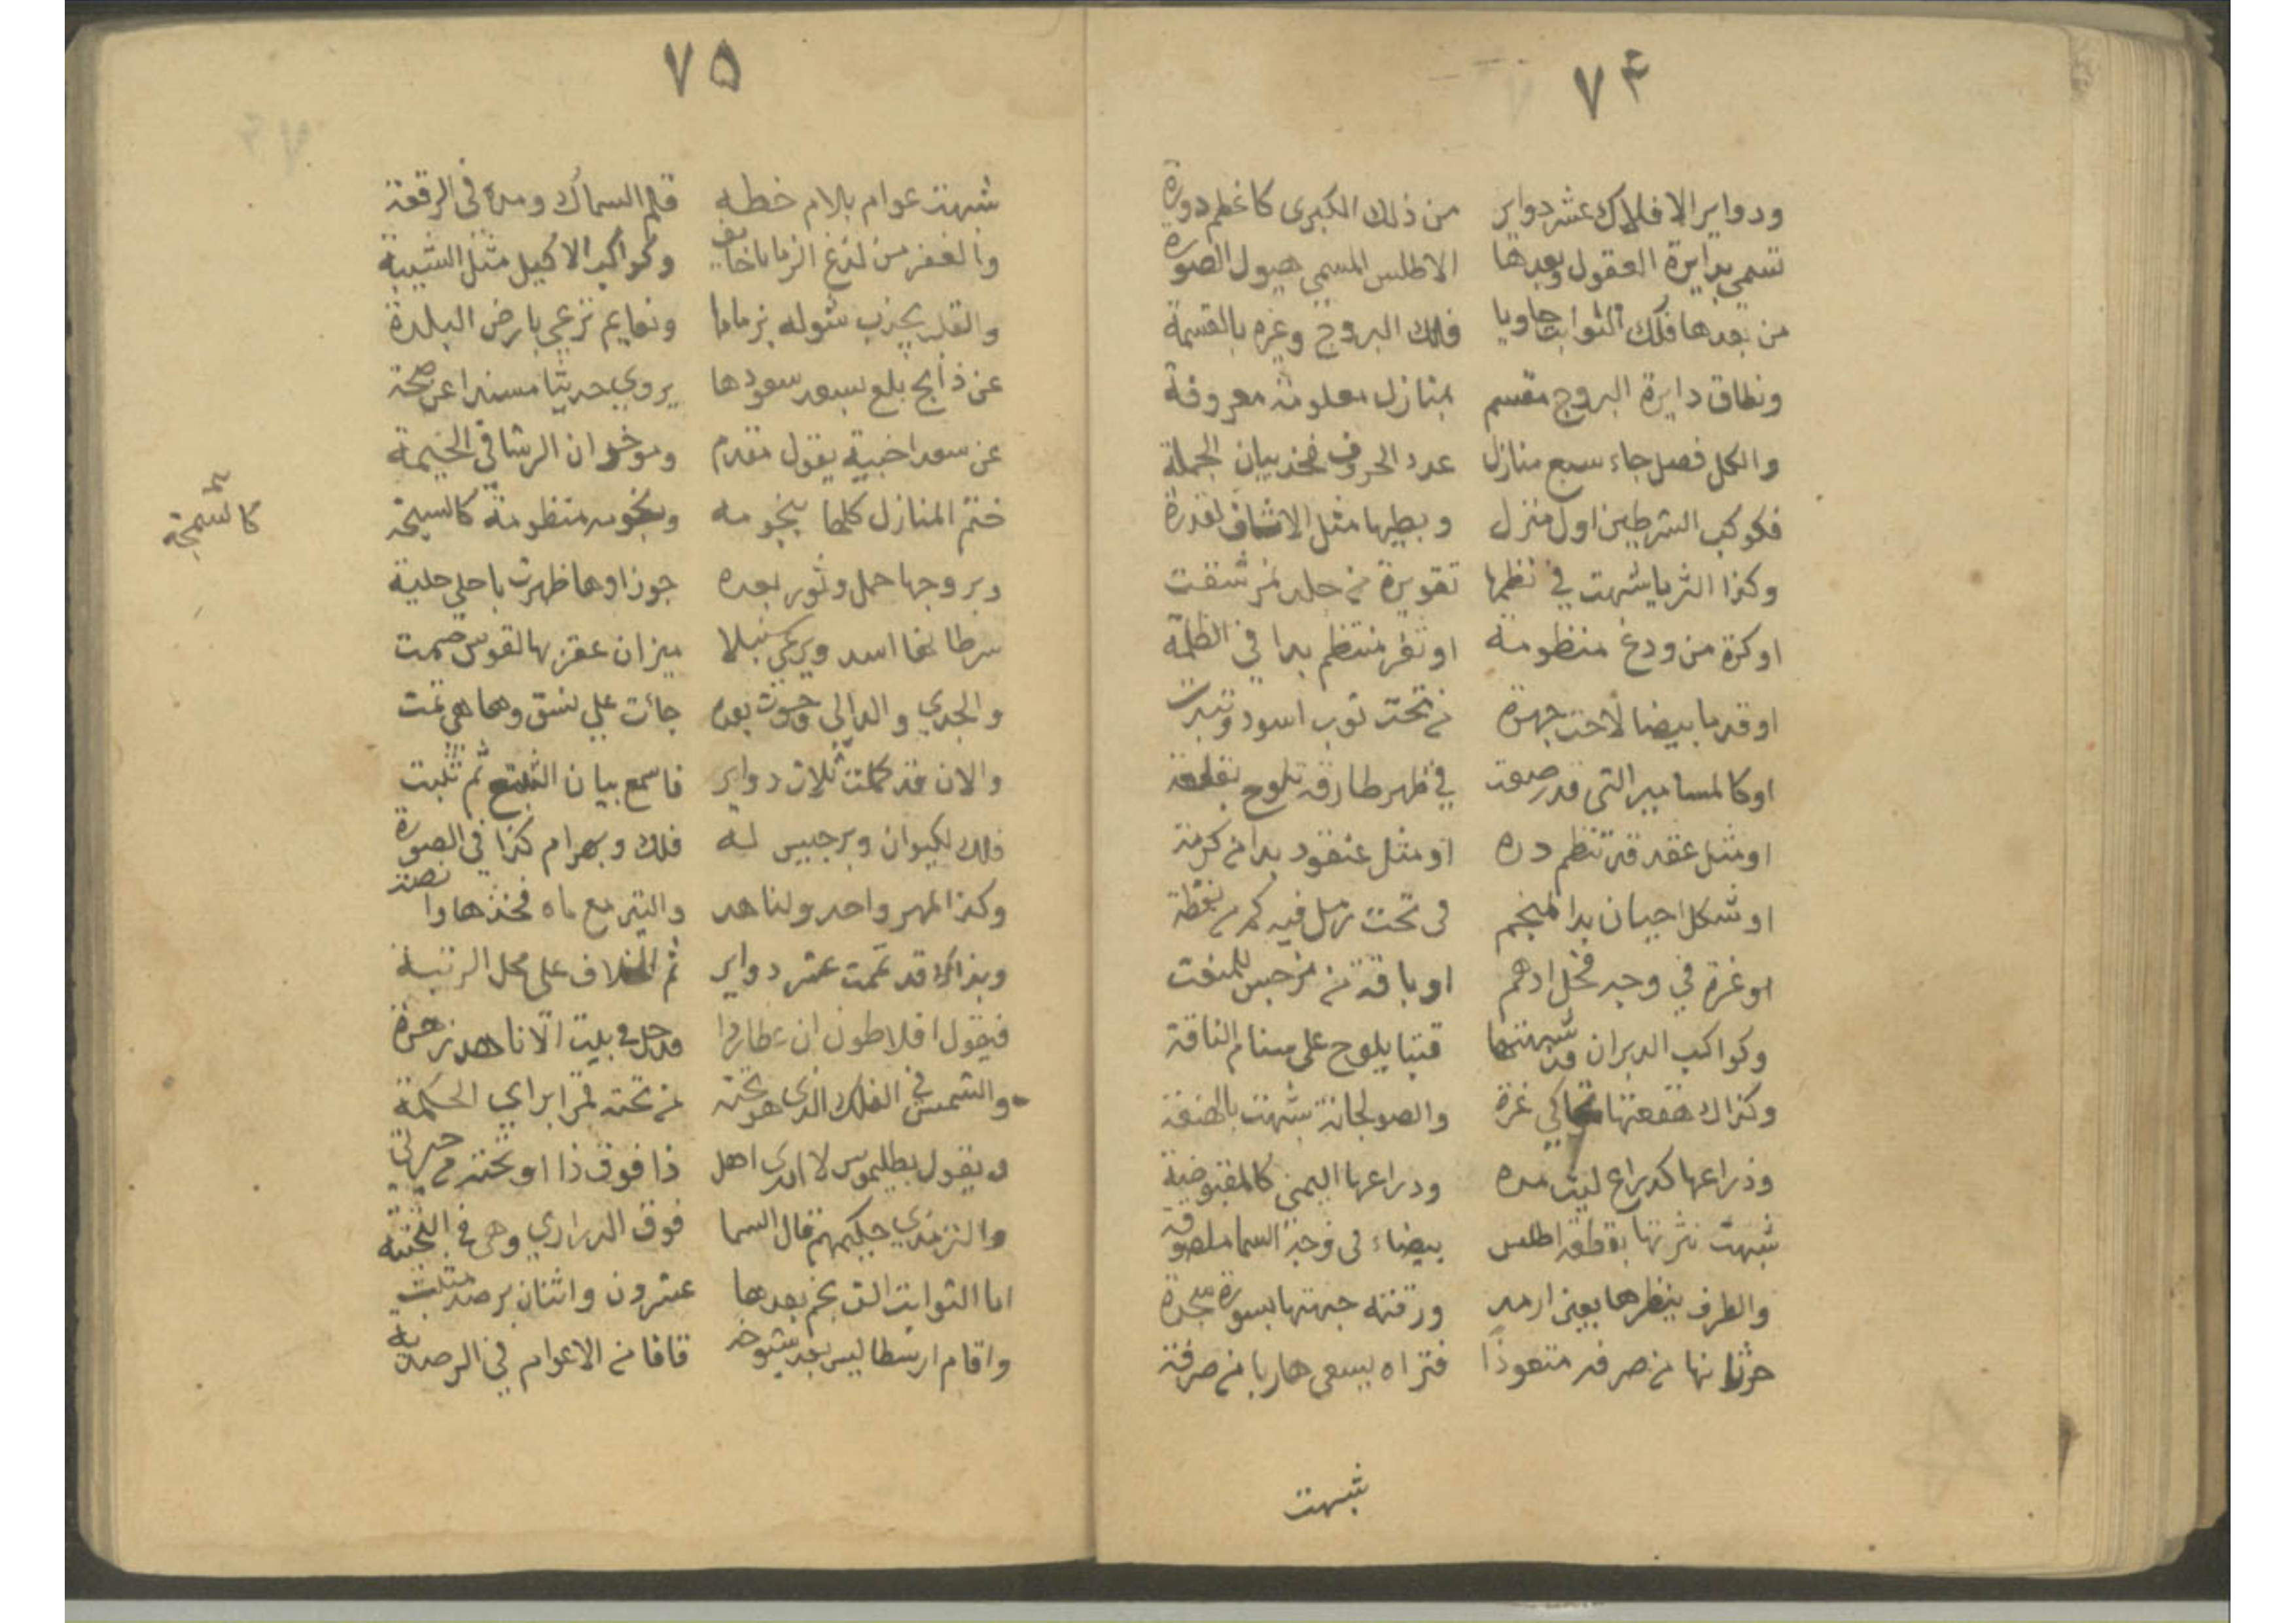 ٧٤
ودواير الافلاك عشر دواير من ذلك الكبرى كاعظم دورة
تسمى بدايرة العقول وبعدها الاطلس المسمى هيول الصورة
من بعدها فلك الثوابت حاويا فلك البروج وغيره بالقسمة
ونطاق دايرة البروج مقسم بمنازل معلومة معروفة
والكل فصل جاء سبع منازل عدد الحروف فخذ بيان الجملة
فكوكب الشرطين اول منزل وبطينها مثل الاثاف لقدرة
وكذا الثريا شبهت في نظمها تقويرة من جلد نمر شقت
او كرة من ودع منظومة او ثغر منتظم بدا في الظلمة
او قدما بيضا لاحت جهرة من تحت ثوب اسود وتبدت
او كالمسامير التي قد رصعت في ظهر طارقة تلوح بقلعة
او مثل عقد قد تنظم دره او مثل عنقود بدا من كرمة
او شكل احيان بدا لمنجم في تحت رمل فيه كم من نقطة
او غرة في وجه فحل ادهم او باقة من نرجس للمنفت
وكواكب الدبران قد شبهتها قتبا يلوح على سنام الناقة
وكذاك هقعتها تحاكي غرة والصولجانة شبهت بالهنعة
وذراعها كذراع ليث مده ودراعها اليمنى كالمقبوضة
شبهت نثرتها بقطعة اطلس بيضاء في وجه السما ملصوقة
والطرف ينظرها بعين ارمد ورقته جبهتها بسورة سجدة
خرتانها من صرفه متعوذا فتراه يسعى هاربا من صرفة
شبهت
٧٥
شبهت عوام بالام خطه قلم السماك ومده في الرقعة
والغفر من لدغ الزبانا خايف وكواكب الاكيل مثل الشيبة
والقلب يجذب شوله بزماما ونعايم ترعي بارض البلدة
عن ذابح بلع بسعد سعودها يروي حديثا مسندا عن صحة
عن سعد اخبية يقول مقدم وموخر ان الرشا في الخيمة
ختم المنازل كلها بنجومه ونجومه منظومة كالسبحة
كالسمجة
وبروجها حمل وثور بعده جوزاوها ظهرت باحلي حلية
سرطانها اسد ويرعي سنبلا ميزان عقربها لقوس صمت
والجدي والدالي وحوت بعده جائت علي نسق وها هي تمت
والان قد كملت ثلاث دواير فاسمع بيان التسع ثم تثبت
فلك لكيوان وبرجيس له فلك وبهرام كذا في الصورة
وكذا المهر واحد ولناهد والتير مع ماه فخذها وا نصت
وبذاك قد تمت عشر دواير ثم الخلاف على محل الرتبة
فيقول افلاطون ان عطاردا قد حل في بيت الاناهد زهرة
والشمس في الفلك الذي هو تحته من تحته قمر ابراي الحكمة
ويقول بطليموس لا ادري اهل ذا فوق ذا او تحته من حيرتي
والترمذي حكيمهم قال السما فوق الدراري وهي في التحتية
اما الثوابت الف نجم بعدها عشرون واثنان برصد مثبت
واقام ارسطاليس بعد شيوخه قافا من الاعوام في الرصدية